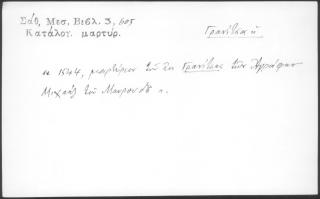 Σάθ, Μεσ. Βιβλ. 3, 605
Κατάλογ. μαρτυρ.
Γρανίτσα ἡ
1544, μαρτύριον τοῦ ἐκ Γρανίτσης τῶν Ἀγράφων
Μιχαὴλ τοῦ Μαυρουδῆ